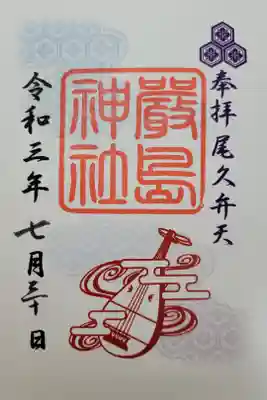 奉拝 尾久弁天
嚴島
神社
令和三年 七月三十日